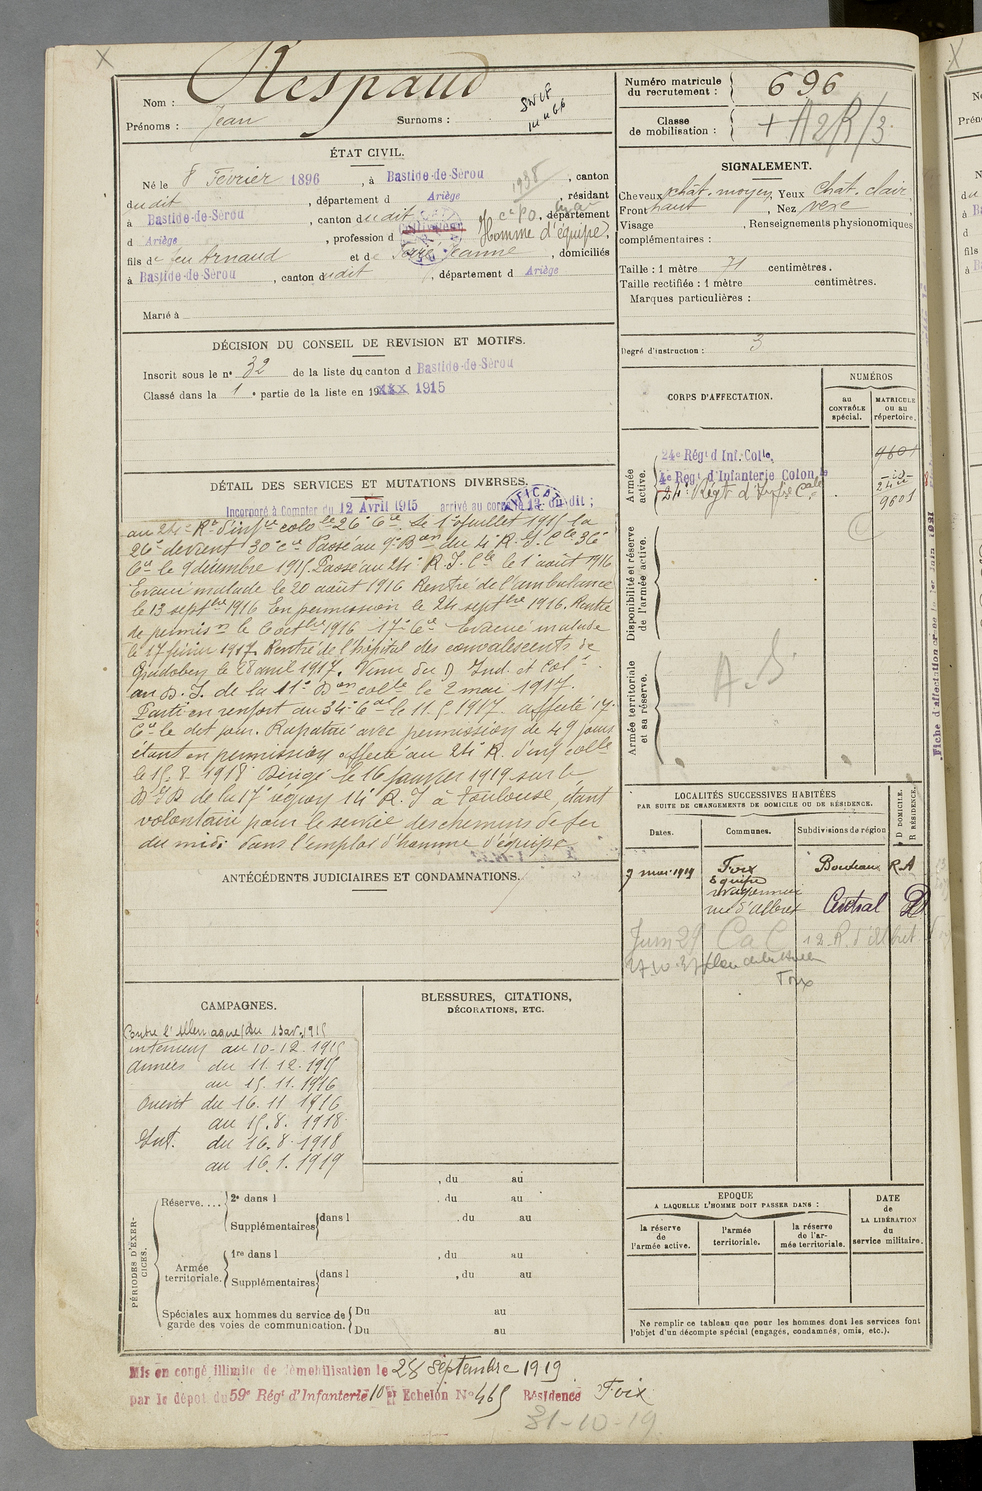 Nom : Respaud
Prénoms : Jean Surnoms :
Numéro matricule du recrutement : 696
Classe de mobilisation :
ÉTAT CIVIL.
Né le 8 Février 1896, à Bastide-de-Sérou, canton
dudit, département d Ariège, résidant
à Bastide-de-Sérou, canton dudit, département
d Ariège, profession d Cultivateur Homme d'équipe,
fils de feu Arnaud et de Jeanne, domiciliés
à Bastide-de-Sérou, canton dudit, département d Ariège
Marié à
SIGNALEMENT.
Cheveux chât. moyen, Yeux Chat. clair
Front haut, Nez vexe
Visage , Renseignements physionomiques
complémentaires :
Taille : 1 mètre 71 centimètres.
Taille rectifiée : 1 mètre centimètres.
Marques particulières :
Degré d'instruction : 3
DÉCISION DU CONSEIL DE REVISION ET MOTIFS.
Inscrit sous le nº 32 de la liste du canton d Bastide-de-Sérou
Classé dans la 1e partie de la liste en 19xxx 1915
DÉTAIL DES SERVICES ET MUTATIONS DIVERSES.
Incorporé à Compter du 12 Avril 1915 arrivé au corps le 13 dudit ;
au 24e Rt d'infie colole 26e Cie. Le 1er Juillet 1915 la
26e devient 30e Cie Passé au 9e Bon du 4e R. I. Cle 36e
Cie le 9 décembre 1915. Passé au 24e R. I. Cle le 1er août 1916
Evacué malade le 20 août 1916 Rentré de l'ambulance
le 13 septbre 1916 En permission le 24 septbre 1916. Rentré
de permison le 6 octbre 1916 17e Cie Evacué malade
le 17 février 1917. Rentré de l'hôpital des convalescents de
le 28 avril 1917. Venu du D. Ind. et Colal
au D. I. de la 11e Don colle le 2 mai 1917.
Parti en renfort au 34e Cal le 11.5.1917 affecté 14e
Cie le dit jour. Rapatrié avec permission de 49 jours
étant en permission affecté au 24e R. d'inf colle
le 15.8.1918 Dirigé le 16 janvier 1919 sur le
de la 17e région 14e R. I à Toulouse, étant
volontaire pour le service des chemins de fer
du midi dans l'emploi d'homme d'équipe
CORPS D'AFFECTATION.
NUMÉROS
au CONTRÔLE spécial.
MATRICULE ou au répertoire.
Armée active.
24e Régt d'Inf. Colle. 9601
4e Régt d'Infanterie Colon.le -id-
24e Régt d'Infie Cale 9601
Disponibilité et réserve de l'armée active.
Armée territoriale et sa réserve.
A. S.
LOCALITÉS SUCCESSIVES HABITÉES
PAR SUITE DE CHANGEMENTS DE DOMICILE OU DE RÉSIDENCE.
Dates. Communes. Subdivisions de région D DOMICILE. R RÉSIDENCE.
9 mai 1919 Foix Bordeaux R A
Equipe
rue d'Albret Central D
Juin 29 CaC 12 R. d'Albret
27.10.37
Foix
ANTÉCÉDENTS JUDICIAIRES ET CONDAMNATIONS.
CAMPAGNES.
Contre l'Allemagne du 13 av. 1915
intérieur au 10-12-1915
Armées du 11.12.1915
au 15.11.1916
Orient du 16.11.1916
au 15.8.1918
Int. du 16.8.1918
au 16.1.1919
BLESSURES, CITATIONS,
DÉCORATIONS, ETC.
PÉRIODES D'EXERCICES.
Réserve.... , du au
2e dans l , du au
Supplémentaires dans l , du au
Armée territoriale. 1re dans l , du au
Supplémentaires dans l , du au
Spéciales aux hommes du service de garde des voies de communication. Du au
Du au
EPOQUE
A LAQUELLE L'HOMME DOIT PASSER DANS :
la réserve de l'armée active.
l'armée territoriale.
la réserve de l'armée territoriale.
DATE de LA LIBÉRATION du service militaire.
Ne remplir ce tableau que pour les hommes dont les services font
l'objet d'un décompte spécial (engagés, condamnés, omis, etc.).
Mis en congé illimité de démobilisation le 28 septembre 1919
par le dépôt du 59e Régt d'Infanterie 10e Echelon No 465 Résidence Foix
31-10-19